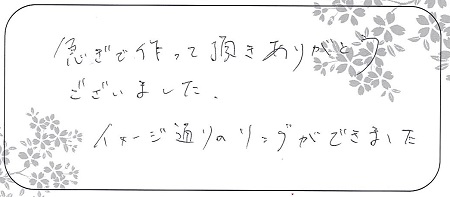 急ぎで作って頂きありがとう
ございました.
イメージ通りのリングができました